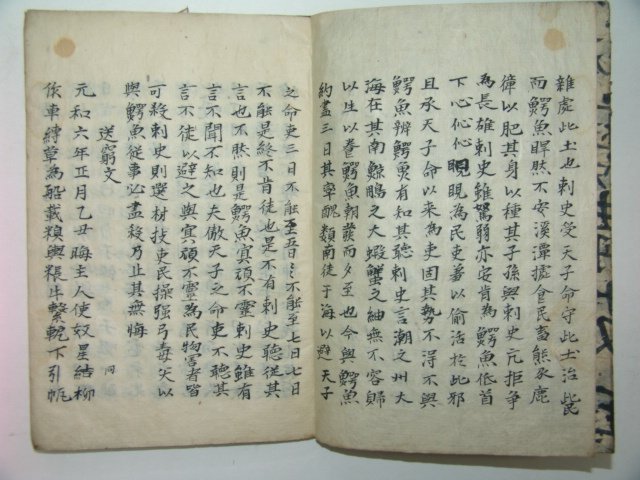 雜處此土也刺史受天子命守此土治此民
而鱷魚睅然不安溪潭據食民畜熊豕鹿
獐以肥其身以種其子孫與刺史亢拒爭
為長雄刺史雖駑弱亦安肯為鱷魚低首
下心伈伈睍睍為民吏羞以偷活於此邪
且承天子命以來為吏固其勢不得不與
鱷魚辨鱷魚有知其聽刺史言潮之州大
海在其南鯨鵬之大蝦蟹之細無不容歸
以生以養鱷魚朝發而夕至也今與鱷魚
約盡三日其率醜類南徙于海以避天子
之命吏三日不能至五日〻不能至七日七日
不能是終不肯徙也是不有刺史聽從其
言也不然則是鱷魚冥頑不靈刺史雖有
言不聞不知也夫傲天子之命吏不聽其
言不徙以避之與冥頑不靈為民物害者皆
可殺刺史則選材技吏民操強弓毒矢以
與鱷魚從事必盡殺乃止其無悔
送窮文 同
元和六年正月乙丑晦主人使奴星結柳
作車縛草為船載糗與粻牛繫軛下引帆